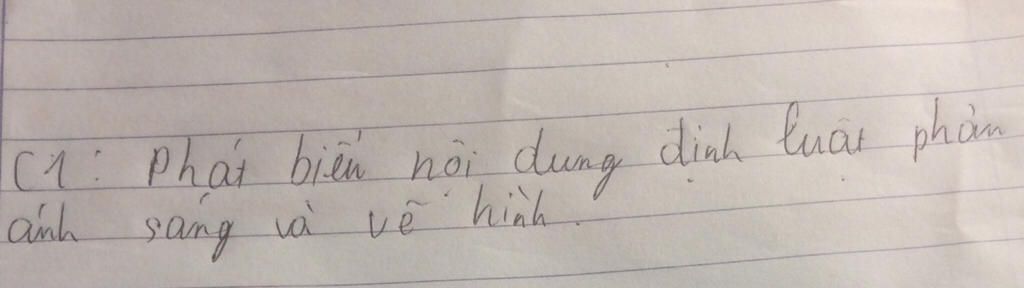 C1: Phát biểu nội dung định luật phản
ánh sáng và vẽ hình.